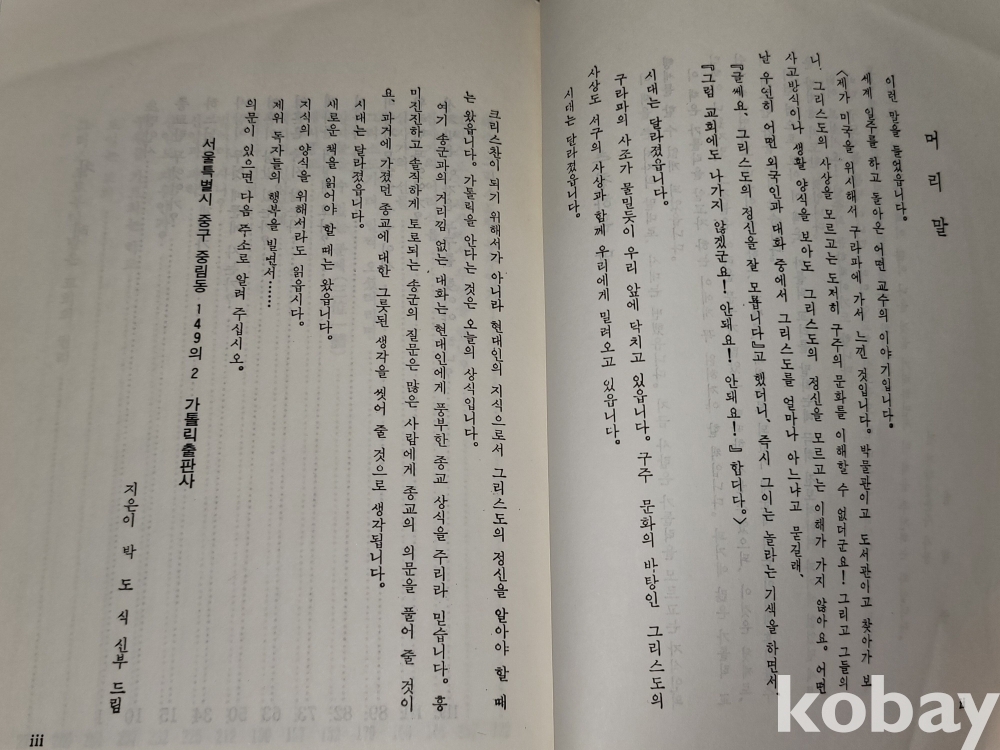 머리말
이런 말을 들었읍니다.
세계 일주를 하고 돌아온 어떤 교수의 이야기입니다.
〈제가 미국을 위시해서 구라파에 가서 느낀 것입니다. 박물관이고 도서관이고 찾아가 보
니, 그리스도의 사상을 모르고는 도저히 구주의 문화를 이해할 수 없더군요! 그리고 그들의
사고방식이나 생활 양식을 보아도 그리스도의 정신을 모르고는 이해가 가지 않아요. 어떤
난 우연히 어떤 외국인과 대화 중에서 그리스도를 얼마나 아느냐고 묻길래,
『글쎄요, 그리스도의 정신을 잘 모릅니다』고 했더니, 즉시 그이는 놀라는 기색을 하면서,
『그럼 교회에도 나가지 않겠군요! 안돼요! 안돼요!』 한디다.〉
시대는 달라졌읍니다.
구라파의 사조가 물밀듯이 우리 앞에 닥치고 있읍니다. 구주 문화의 바탕인 그리스도의
사상도 서구의 사상과 함께 우리에게 밀려오고 있읍니다.
시대는 달라졌읍니다.
크리스찬이 되기 위해서가 아니라 현대인의 지식으로서 그리스도의 정신을 알아야 할 때
는 왔읍니다. 가톨릭을 안다는 것은 오늘의 상식입니다.
여기 송군과의 거리낌 없는 대화는 현대인에게 풍부한 종교 상식을 주리라 믿습니다. 흥
미진진하고 솔직하게 토로되는 송군의 질문은 많은 사람에게 종교의 의문을 풀어 줄 것이
요, 과거에 가졌던 종교에 대한 그릇된 생각을 씻어 줄 것으로 생각됩니다.
시대는 달라졌읍니다.
새로운 책을 읽어야 할 때는 왔읍니다.
지식의 양식을 위해서라도 읽읍시다.
제위 독자들의 행복을 빌면서……
의문이 있으면 다음 주소로 알려 주십시오.
서울특별시 중구 중림동 149의 2 가톨릭출판사
지은이 박도식 신부 드림
iii
kobay